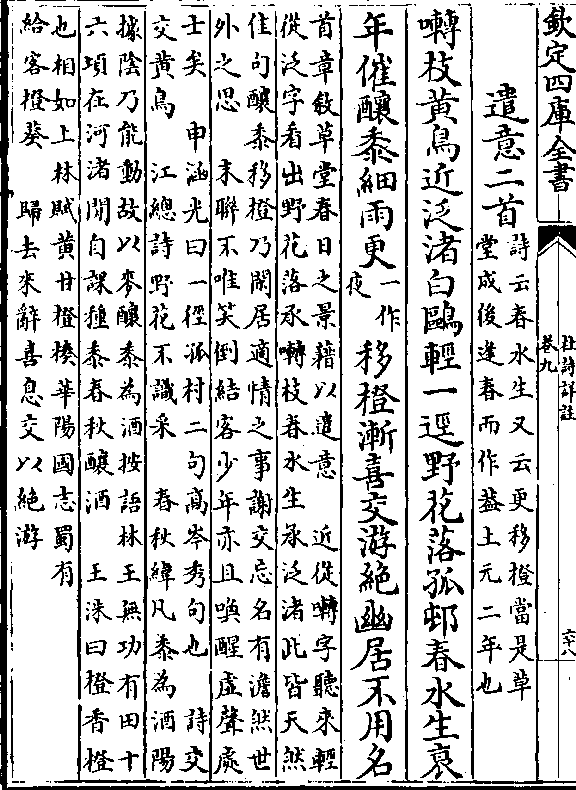 欽定四庫全書
杜詩詳註
卷九
遣意二首
詩云春水生又云更移橙當是草
堂成後逢春而作蓋上元二年也
囀枝黃鳥近泛渚白鷗輕一逕野花落孤邨春水生衰
年催釀黍細雨更一作夜移橙漸喜交游絶幽居不用名
首章敘草堂春日之景藉以遣意　近從囀字聽來輕
從泛字看出野花落承囀枝春水生承泛渚此皆天然
佳句釀黍移橙乃閑居適情之事謝交忘名有澹然世
外之思　末聯不唯笑倒結客少年亦且喚醒虛聲處
士矣　申涵光曰一徑孤村二句高岑秀句也　詩交
交黃鳥　江總詩野花不識采　春秋緯凡黍為酒陽
據陰乃能動故以麥釀黍為酒按語林王無功有田十
六項在河渚間自課種黍春秋釀酒　王洙曰橙香橙
也相如上林賦黃甘橙楱華陽國志蜀有
給客橙葵　歸去來辭喜息交以絶游